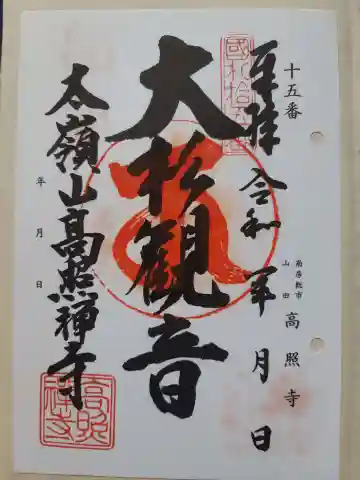 十五番
南房総市
山田
高照寺
奉拝
令和 年 月 日
大松観音
太嶺山高照禅寺
年 月 日
高照禅寺